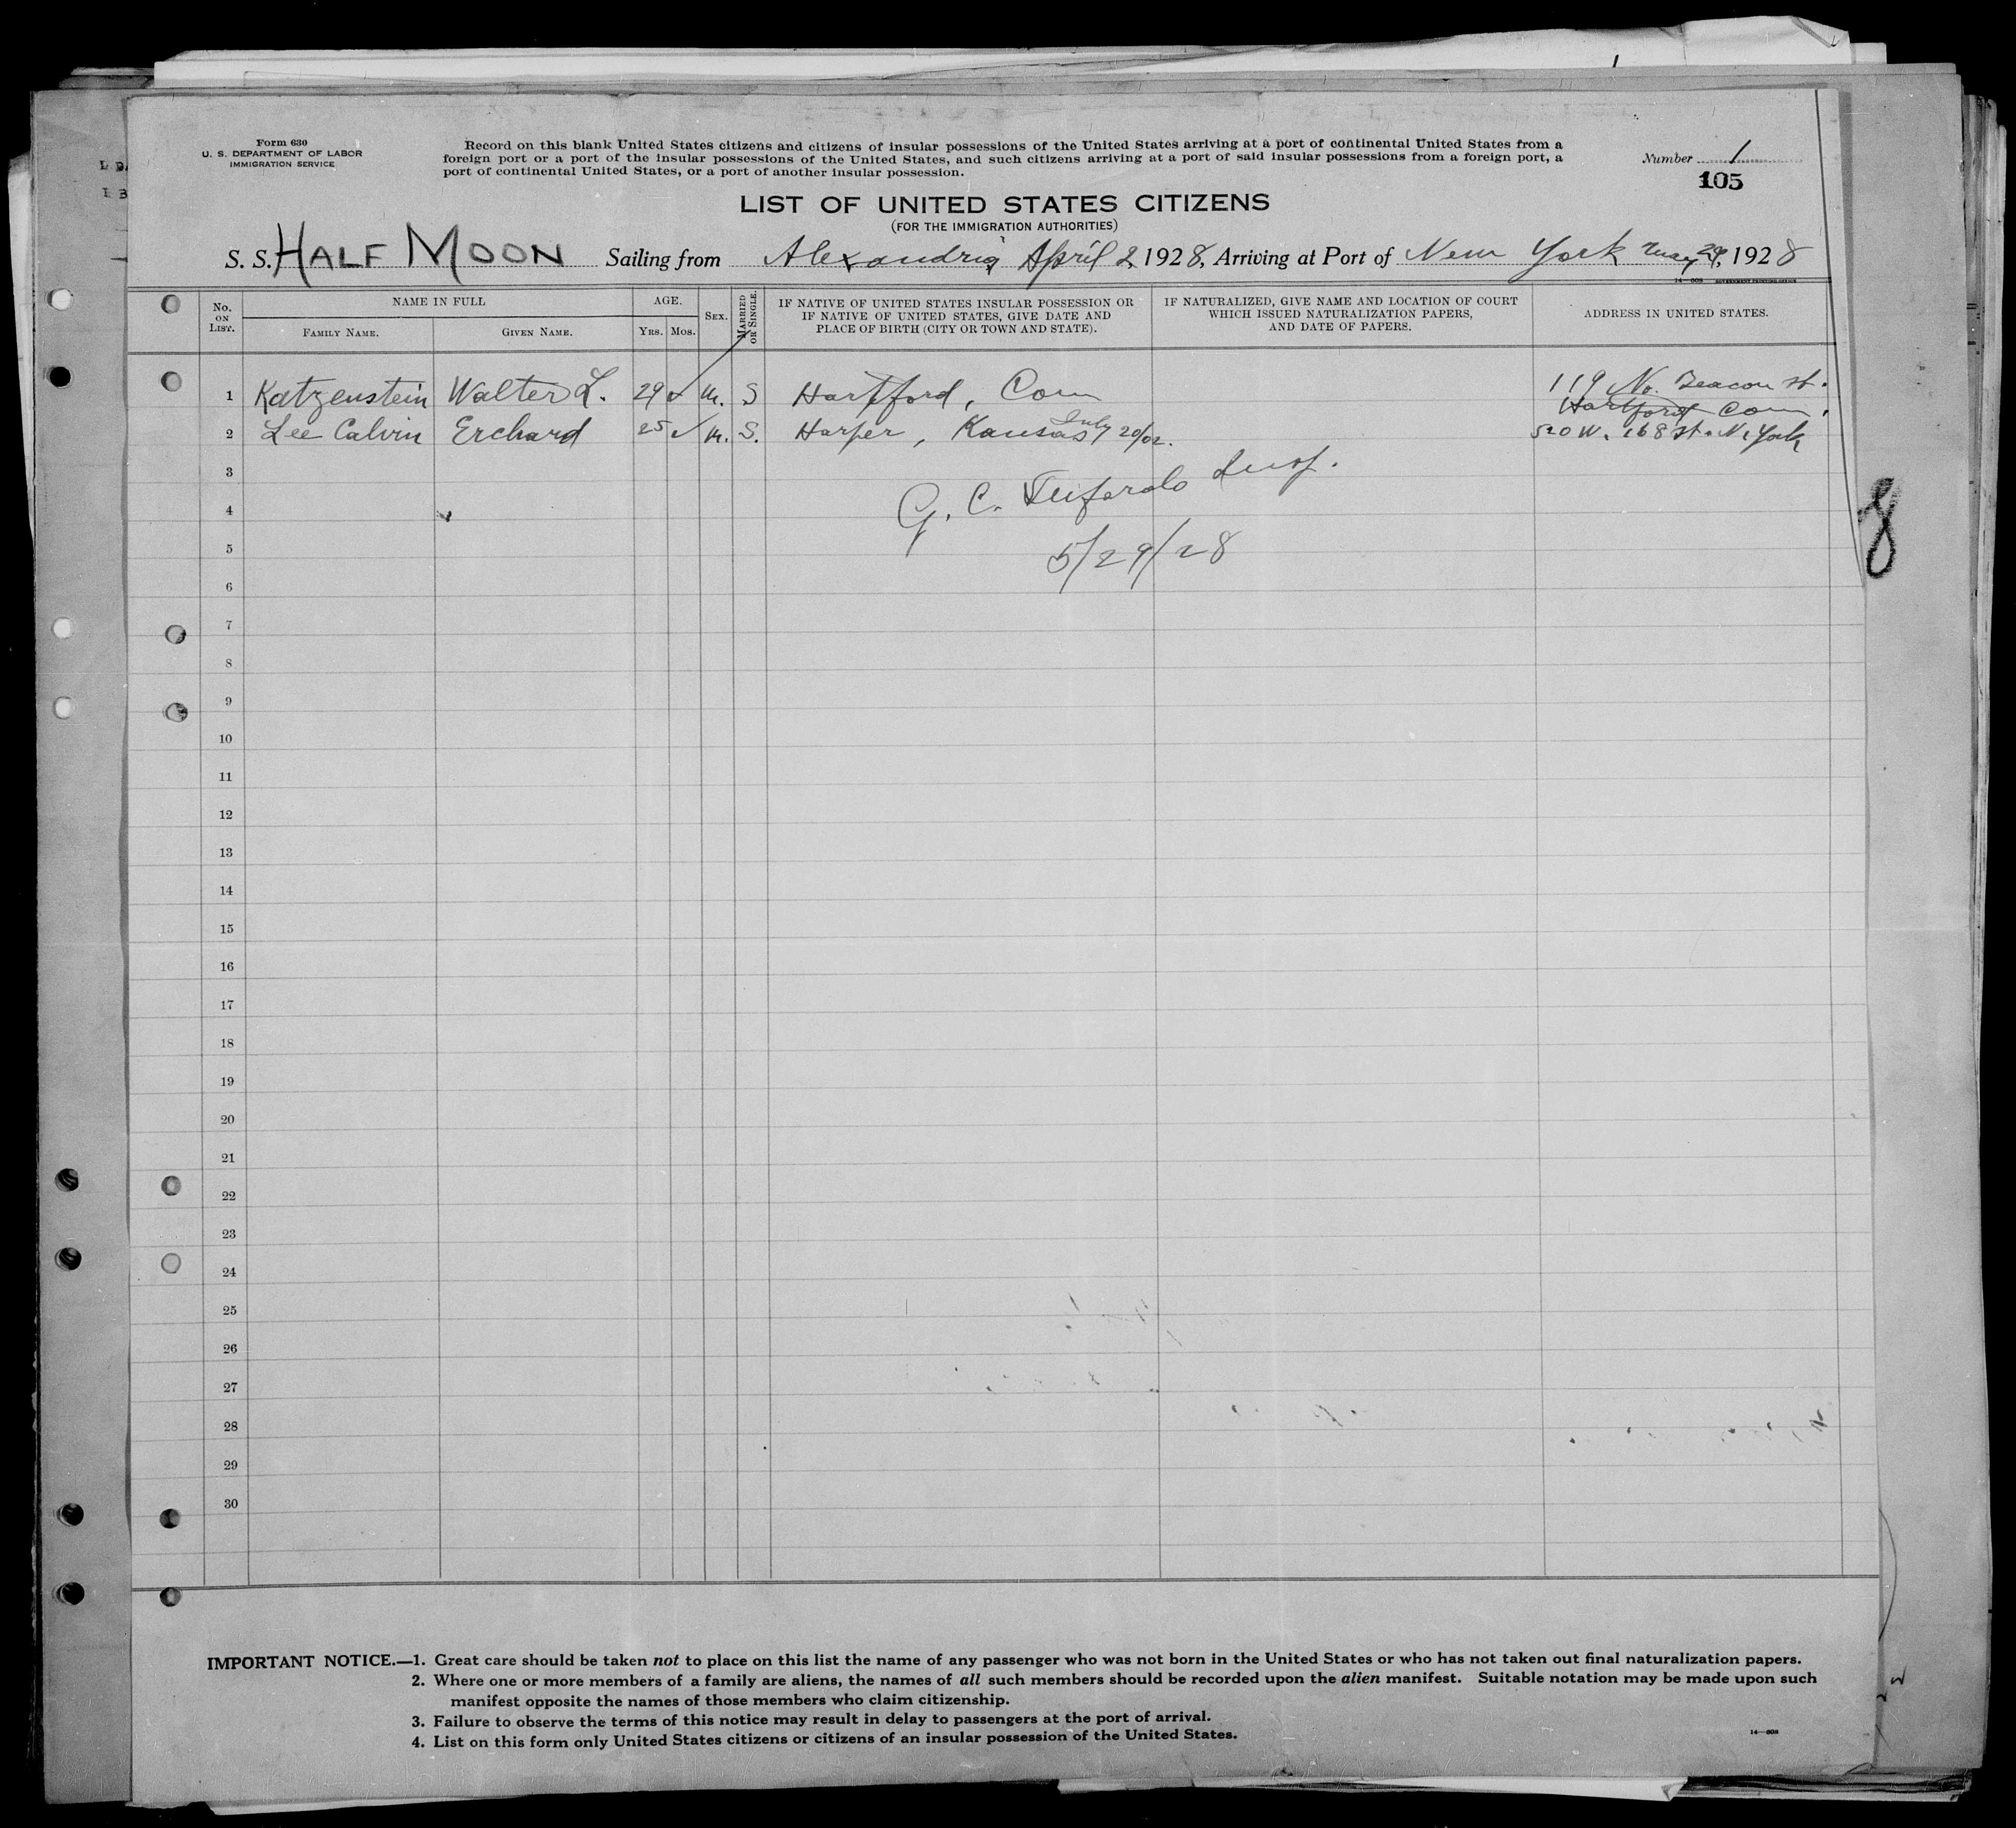 Form 630
U. S. DEPARTMENT OF LABOR
IMMIGRATION SERVICE
Record on this blank United States citizens and citizens of insular possessions of the United States arriving at a port of continental United States from a
foreign port or a port of the insular possessions of the United States, and such citizens arriving at a port of said insular possessions from a foreign port, a
port of continental United States, or a port of another insular possession.
Number 1
105
LIST OF UNITED STATES CITIZENS
(FOR THE IMMIGRATION AUTHORITIES)
S. S. HALF MOON Sailing from Alexandria April 2 1928, Arriving at Port of New York May 29, 1928
14—608 GOVERNMENT PRINTING OFFICE
No. ON LIST.
NAME IN FULL
FAMILY NAME.
GIVEN NAME.
AGE.
YRS. MOS.
SEX.
MARRIED OR SINGLE.
IF NATIVE OF UNITED STATES INSULAR POSSESSION OR
IF NATIVE OF UNITED STATES, GIVE DATE AND
PLACE OF BIRTH (CITY OR TOWN AND STATE).
IF NATURALIZED, GIVE NAME AND LOCATION OF COURT
WHICH ISSUED NATURALIZATION PAPERS,
AND DATE OF PAPERS.
ADDRESS IN UNITED STATES.
1 Katzenstein Walter L. 29 ✓ M. S Hartford, Conn 119 No. Beacon St.
Hartford Conn.
2 Lee Calvin Erchard 25 ✓ M. S. Harper, Kansas July 20/02. 520 W. 168 St. N. York
3
G. C. Insp.
4
5
5/29/28
6
7
8
9
10
11
12
13
14
15
16
17
18
19
20
21
22
23
24
25
26
27
28
29
30
8
IMPORTANT NOTICE.—1. Great care should be taken not to place on this list the name of any passenger who was not born in the United States or who has not taken out final naturalization papers.
2. Where one or more members of a family are aliens, the names of all such members should be recorded upon the alien manifest. Suitable notation may be made upon such
manifest opposite the names of those members who claim citizenship.
3. Failure to observe the terms of this notice may result in delay to passengers at the port of arrival.
4. List on this form only United States citizens or citizens of an insular possession of the United States.
14—608